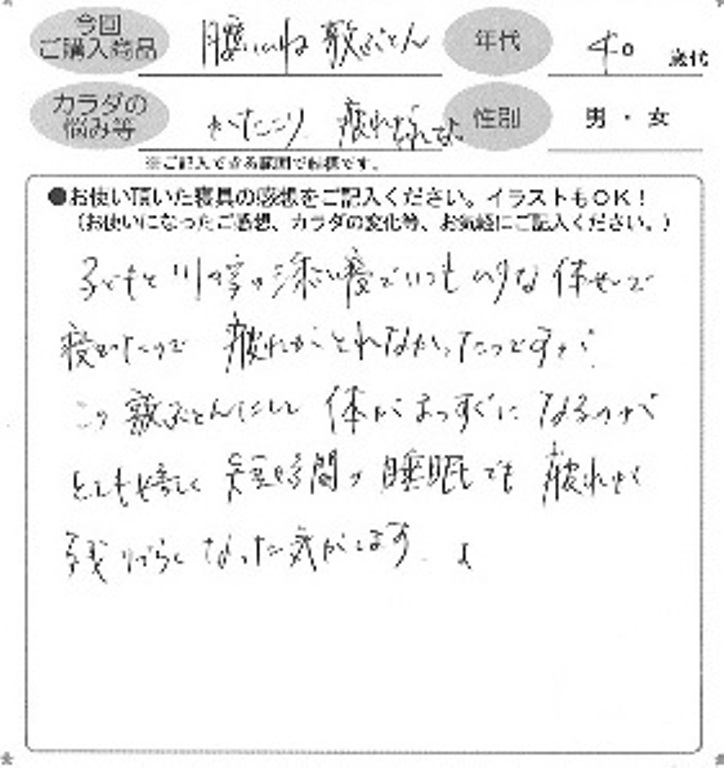 今回
ご購入商品
腰いいね 敷ぶとん
年代
40 歳代
カラダの
悩み等
かたこり 疲れがとれない
性別
男・女
※ご記入できる範囲で結構です。
●お使い頂いた寝具の感想をご記入ください。イラストもOK!
(お使いになったご感想、カラダの変化等、お気軽にご記入ください。)
子どもと川の字の添い寝でいつも な体せいで
寝ていたので 疲れがとれなかったのですが
この敷ぶとんにして 体がまっすぐになるのが
とても 短時間の睡眠でも 疲れが
残りづらくなった気がします。